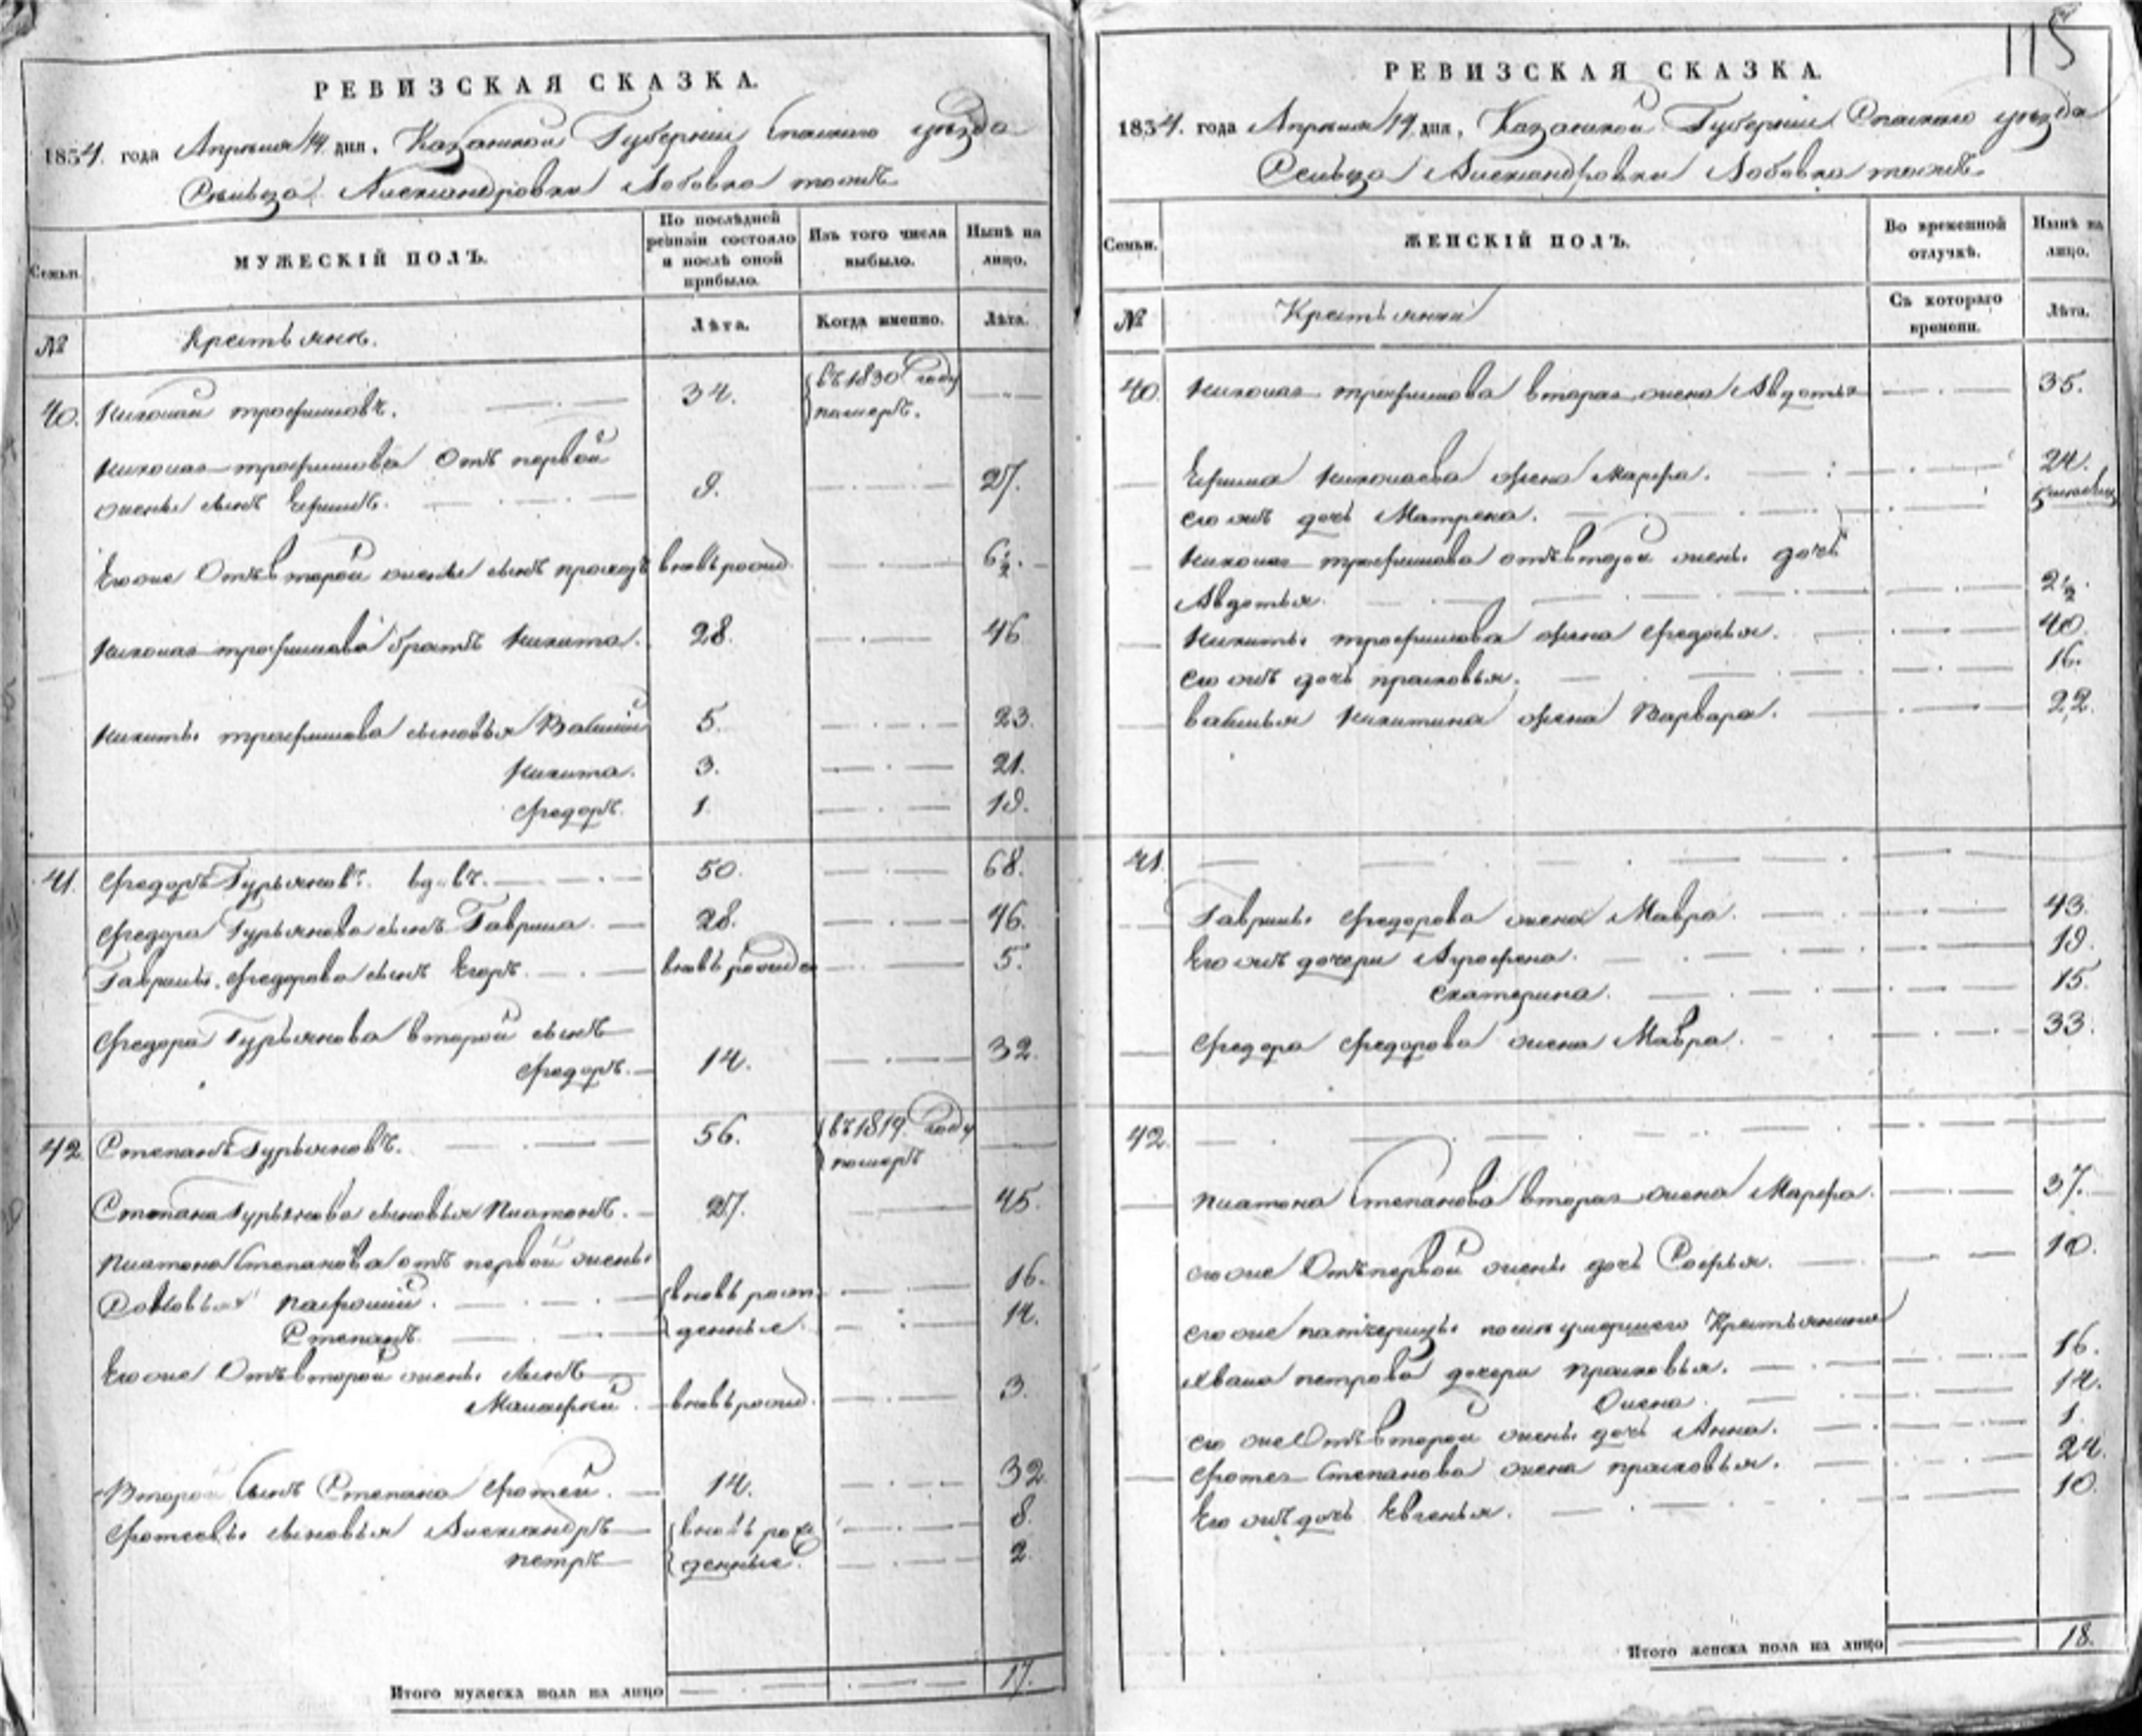 РЕВИЗСКАЯ СКАЗКА.
1834. года Апреля 19. дня, Казанской Губернии Спаскаго уезда
Сельца Александровки Лобовка тожъ
Семьи.
МУЖЕСКІЙ ПОЛЪ.
По послѣдней ревизіи состояло и послѣ оной прибыло.
Изъ того числа выбыло.
Нынѣ на лицо.
№
Крестьяне.
Лѣта.
Когда именно.
Лѣта.
40. Николай трофимовъ. 34. въ 1830 году померъ.
Николая трофимова Отъ первой
жены сынъ Ефимъ. 9. 27.
Его же Отъ второй жены сынъ вновь рожд. 6½.
Николая трофимова братъ Никита. 28. 46
Никиты трофимова сыновья Василий 5. 23.
Никита. 3. 21.
Федоръ. 1. 19.
41. Федоръ Гурьяновъ. вдовъ. 50. 68.
Федора Гурьянова сынъ Гаврила. 28. 46.
Гаврилы Федорова сынъ Егоръ. вновь рожден 5.
Федора Гурьянова второй сынъ
Федоръ. 14. 32.
42. Степанъ Гурьяновъ. 56. въ 1819 году померъ
Степана Гурьянова сыновья Платонъ. 27. 45.
Платона Степанова отъ первой жены
Парфений. вновь рож 16.
Степанъ. денные. 14.
Его же Отъ второй жены сынъ
вновь рожд. 3.
Второй сынъ Степана Фотей. 14. 32.
Фотеевы сыновья Александръ вновь рож 8.
петръ денные. 2.
Итого мужеска пола на лицо 17.
115
РЕВИЗСКАЯ СКАЗКА.
1834. года Апреля 19. дня, Казанской Губернии Спаскаго уезда
Сельца Александровки Лобовка тожъ
Семьи.
ЖЕНСКІЙ ПОЛЪ.
Во временной отлучкѣ.
Нынѣ на лицо.
№
Крестьянки
Съ котораго времени.
Лѣта.
40. Николая трофимова вторая жена Авдотья 35.
Ефима Николаева жена Марфа. 24.
его жъ дочь Матрена. 5
Николая трофимова отъ второй жены дочь
Авдотья. 2½.
Никиты трофимова жена Федосья. 40.
его жъ дочь прасковья. 16.
василья Никитина жена Варвара. 22.
41.
Гаврилы Федорова жена Мавра. 43.
Его жъ дочери Аграфена. 19.
Екатерина. 15.
Федора Федорова жена Мавра. 33.
42.
Платона Степанова вторая жена Марфа. 37.
его же Отъ первой жены дочь Софья. 10.
его же патчерицы после умершего Крестьянина
Ивана петрова дочери прасковья. 16.
14.
его же Отъ второй жены дочь Анна. 1.
Фотея Степанова жена прасковья. 24.
Его жъ дочь Евгенья. 10.
Итого женска пола на лицо 18.